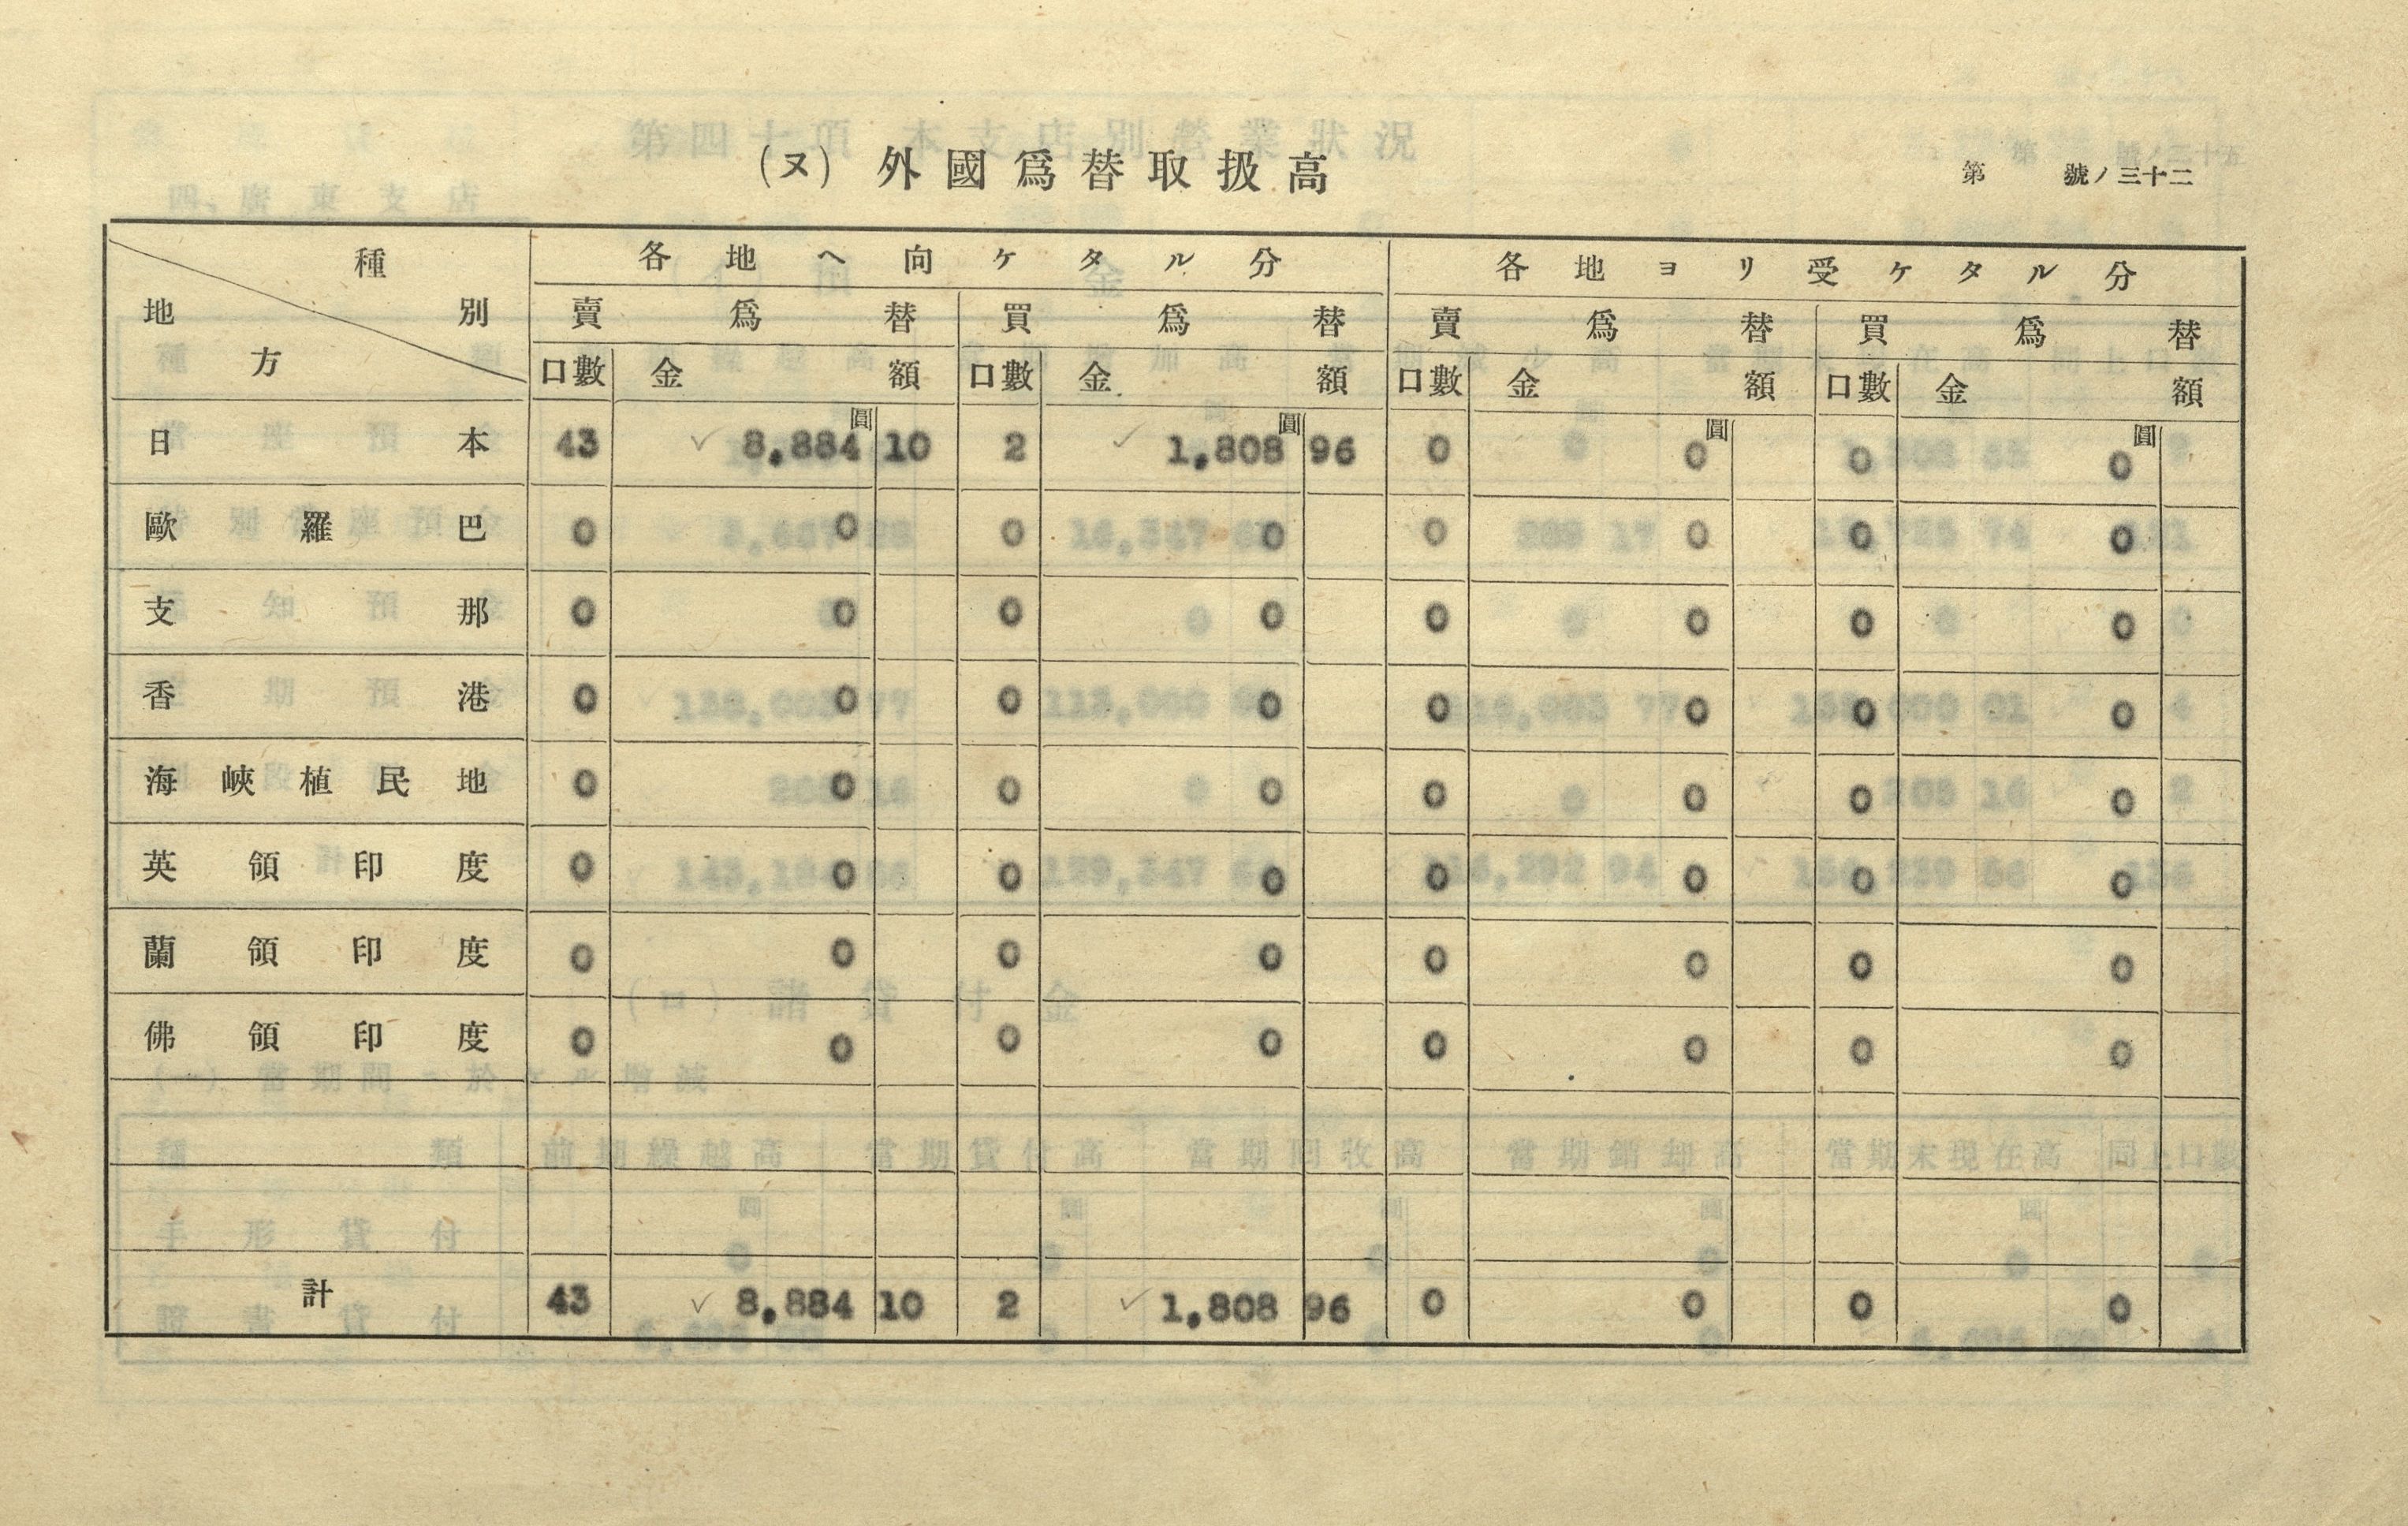 (ヌ) 外國爲替取扱高
第 號ノ三十二
種別 地方 各地ヘ向ケタル分 各地ヨリ受ケタル分
賣爲替 買爲替 賣爲替 買爲替
口數 金額 口數 金額 口數 金額 口數 金額
圓 圓 圓 圓
日本 43 8,884 10 2 1,808 96 0 0 0 0
歐羅巴 0 0 0 0 0 0 0 0
支那 0 0 0 0 0 0 0 0
香港 0 0 0 0 0 0 0 0
海峽植民地 0 0 0 0 0 0 0 0
英領印度 0 0 0 0 0 0 0 0
蘭領印度 0 0 0 0 0 0 0 0
佛領印度 0 0 0 0 0 0 0 0
計 43 8,884 10 2 1,808 96 0 0 0 0